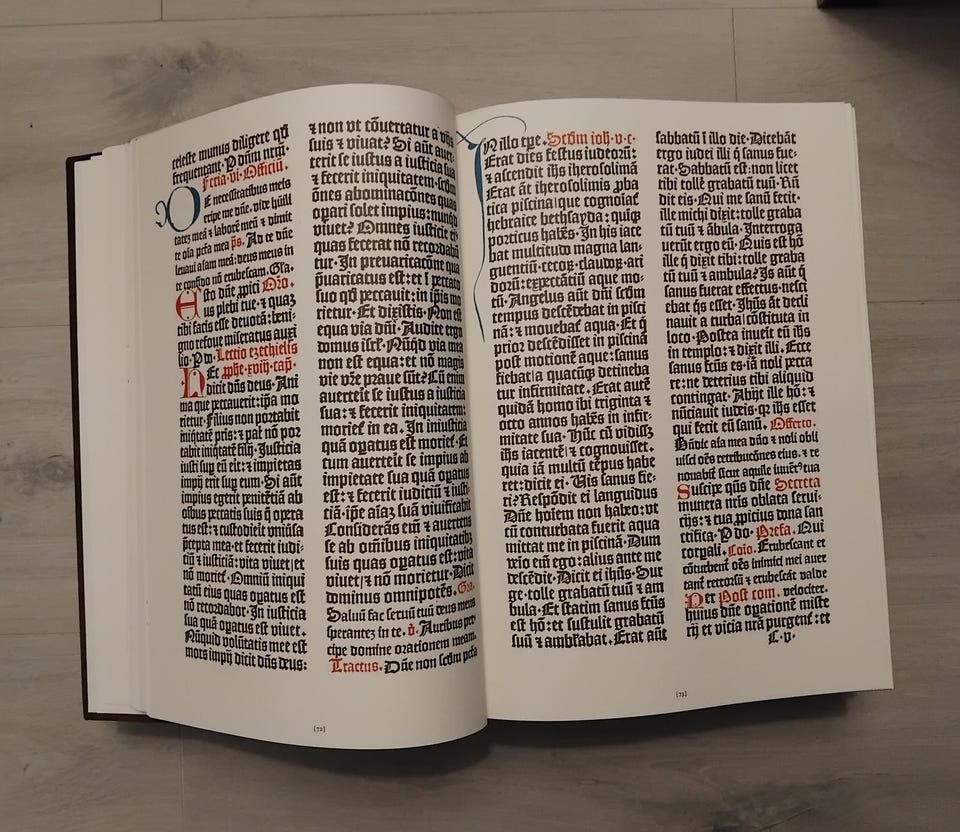 celeste munus diligere qđ
frequentant. P dnm nrm.
Feria. vi. Officiū.
DE necessitatibus meis
eripe me dn̄e. vide hūili
tatez meā ⁊ laborē meū ⁊ dimit
te oīa pctā mea p̄s. Ad te dn̄e
leuaui aīam meā: deus meus in
te confido nō erubescam. Gl'a.
Esto dn̄e ꝓpici Oro.
us plebi tue. ⁊ quaz
tibi facis esse deuotā: beni-
gno refoue miseratus auxi
lio. P do. Lectio ezechielis
Hec ꝓphe. xviij. cap.
Dicit dn̄s deus. Ani
ma que peccauerit: ip̄a mo
rietur. Filius non portabit
iniq̄tatē pr̄is: ⁊ pat̄ nō por
tabit iniq̄tatē filij. Iusticia
iusti suꝑ eū erit: ⁊ impietas
impij erit suꝑ eum. Si aūt
impius egerit penitētiā ab
oībus peccatis suis q̄ opera
tus est: ⁊ custodierit vniūsa
p̄cepta mea. et fecerit iudi-
ciū ⁊ iusticiā: vita viuet / et
nō moriet̄. Omniū iniqui
tatū eius quas opatus est
nō recordabor. In iusticia
sua quā opatus est viuet.
Nūquid volūtatis mee est
mors impij dicit dn̄s deus:
⁊ non vt cōuertatur a vijs
suis ⁊ viuat? Si aūt auer-
terit se iustus a iusticia sua
⁊ fecerit iniquitatem. scdm
ōnes abominacōnes quas
opari solet impius: nunqđ
viuet? Omnes iusticie ei⁹
quas fecerat nō recordabū
tur. In preuaricacōne qua
p̄uaricatus est: et ī peccato
suo qđ peccauit: in ip̄is mo
rietur. Et dixistis. Non est
equa via dn̄i. Audite ergo
domus isrl'. Nūqđ via mea
non est equa: et nō magis
vie vr̄e praue sūt? Cū enim
auerterit se iustus a iusticia
sua: ⁊ fecerit iniquitatem:
moriet̄ in ea. In iniusticia
quā opatus est moriet̄. Et
cum auerterit se impius ab
impietate sua quā opatus
est: ⁊ fecerit iudiciū ⁊ iusti-
tiā. ip̄e aīaz suā viuificabit
Considerās em̄ ⁊ auertens
se ab om̄ibus iniquitatibz
suis quas opatus est: vita
viuet / ⁊ nō morietur. Dicit
dominus omnipotēs. Gra.
Saluū fac seruū tuū deus meus
sperantez in te. v̄. Auribus per
cipe domine orationem meam.
Tractus. Dn̄e non scdm pctā
[72]
IN illo tpe. Scdm ioh. v. c.
Erat dies festus iudeorū:
⁊ ascendit ih̄s iherosolimā
Erat āt iherosolimis ꝓba
tica piscina / que cognoīat̄
hebraice bethsayda: quīqꝫ
porticus habēs. In his iace
bat multitudo magna lan-
guentiū. cecoꝝ. claudoꝝ. ari
dorū: expectātiū aque mo-
tū. Angelus aūt dn̄i scdm
tempus descēdebat in pisci
nā: ⁊ mouebat̄ aqua. Et q̄
prior descēdisset in piscinā
post motionē aque: sanus
fiebat / a quacūqꝫ detineba
tur infirmitate. Erat autē
quidā homo ibi triginta ⁊
octo annos habēs in infir-
mitate sua. Hūc cū vidissz
ih̄s iacentē / ⁊ cognouisset.
quia iā multū tēpus habe
ret: dicit ei. Uis sanus fie-
ri? Respōdit ei languidus
Dn̄e hoīem non habeo: vt
cū conturbata fuerit aqua
mittat me in piscinā. Dum
veio em̄ ego: alius ante me
descēdit. Dicit ei ih̄s. Sur
ge. tolle grabatū tuū ⁊ am
bula. Et statim sanus fcūs
est hō: et sustulit grabatū
suū ⁊ ambl'abat. Erat aūt
sabbatū ī illo die. Dicebāt
ergo iudei illi q̄ sanus fue-
rat. Sabbatū est: non licet
tibi tollē grabatū tuū. Rn̄
dit eis. Qui me sanū fecit.
ille michi dixit: tolle graba
tū tuū ⁊ ābula. Interroga
uerūt ergo eū. Quis est hō
ille q̄ dixit tibi: tolle graba
tū tuū ⁊ ambula? Is aūt q̄
sanus fuerat effectus. nesci
ebat q̄s esset. Ih̄us āt decli
nauit a turba / cōstituta in
loco. Postea inuēit eū ih̄s
in templo: ⁊ dixit illi. Ecce
sanus fcūs es: iā noli pecca
re: ne deterius tibi aliquid
contingat. Abijt ille hō: ⁊
nūciauit iudeis. qꝛ ih̄s esset
qui fecit eū sanū. Offerto.
Bn̄dic aīa mea dn̄o ⁊ noli obli
uisci oēs retribucōnes eius. ⁊ re
nouabit̄ sicut aquile iuuēt⁹ tua
Suscipe qs̄ dn̄e Secreta
munera nr̄is oblata serui-
cijs: ⁊ tua ꝓpicius dona san
ctifica. P do. Prefa. Qui
corpali. Cōio. Erubescant et
cōturbent̄ oēs inimici mei auer
tant̄ retrorsū ⁊ erubescāt valde
Per Post com. velociter.
huius dn̄e opationē miste
rij et vicia nr̄a purgent̄: et
[73]